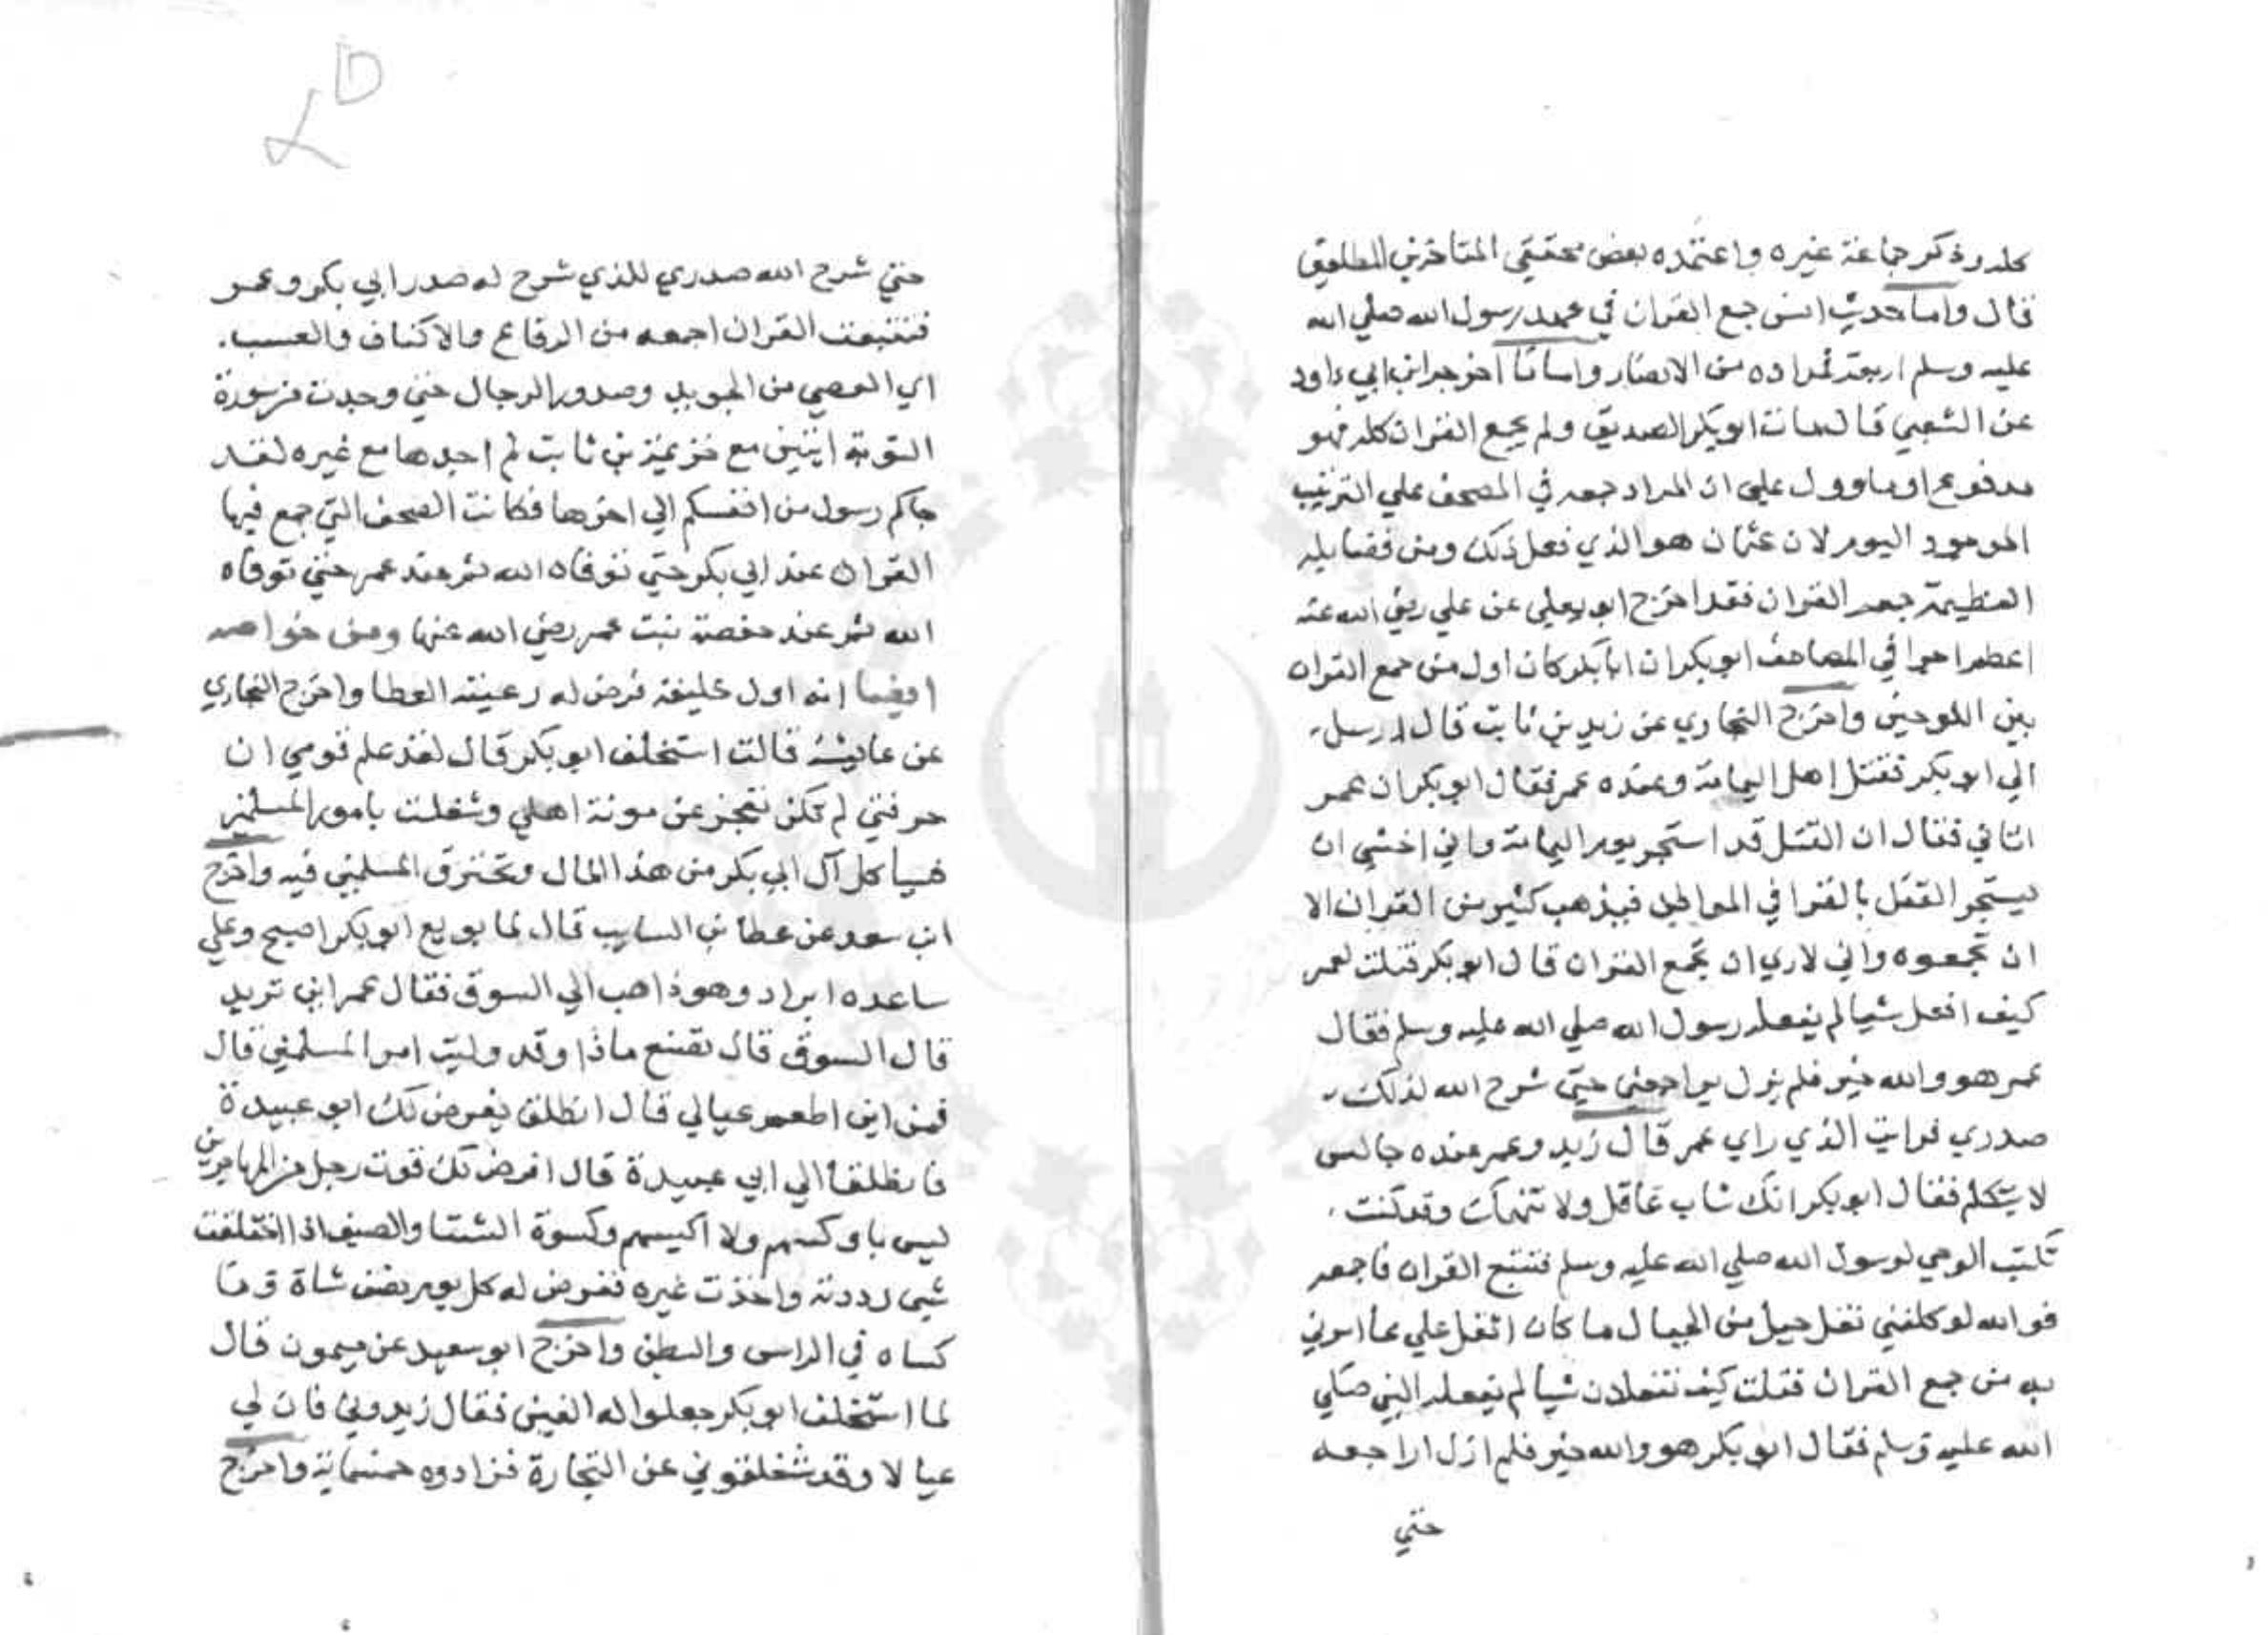 كله وذكر جماعة غيره واعتمده بعض محققي المتاخرين المطلعين
قال واما حديث انس جمع القران في عهد رسول الله صلي الله
عليه وسلم اربعة فمراده من الانصار واما ما اخرجه ابن ابي داود
عن الشعبي قال مات ابو بكر الصديق ولم يجمع القران كله فهو
مدفوع او ماوول علي ان المراد جمعه في المصحف علي الترتيب
الموجود اليوم لان عثمان هو الذي فعل ذلك ومن فضايله
العظيمة جمعه القران فقد اخرج ابو يعلي عن علي رضي الله عنه
اعظم اجرا في المصاحف ابو بكر ان ابا بكر كان اول من جمع القران
بين اللوحين واخرج البخاري عن زيد بن ثابت قال ارسل
الي ابو بكر فقتل اهل اليمامة وعنده عمر فقال ابو بكر ان عمر
اتاني فقال ان القتل قد استحر يوم اليمامة واني اخشي ان
يستحر القتل بالقرا في المواطن فيذهب كثير من القران الا
ان تجمعوه واني لاري ان تجمع القران قال ابو بكر فقلت لعمر
كيف افعل شيا لم يفعله رسول الله صلي الله عليه وسلم فقال
عمر هو والله خير فلم يزل يراجعني حتي شرح الله لذلك
صدري فرايت الذي راي عمر قال زيد وعمر عنده جالس
لا يتكلم فقال ابو بكر انك شاب عاقل ولا نتهمك وقد كنت
تكتب الوحي لرسول الله صلي الله عليه وسلم فتتبع القران فاجمعه
فوالله لو كلفني نقل جبل من الجبال ما كان اثقل علي مما امرني
به من جمع القران فقلت كيف تفعلان شيا لم يفعله النبي صلي
الله عليه وسلم فقال ابو بكر هو والله خير فلم ازل اراجعه
حتي
حتي شرح الله صدري للذي شرح له صدر ابي بكر وعمر
فتتبعت القران اجمعه من الرقاع والاكتاف والعسب
اي العصي من الجريد وصدور الرجال حتي وجدت من سورة
التوبة ايتين مع خزيمة بن ثابت لم اجدها مع غيره لقد
جاكم رسول من انفسكم الي اخرها فكانت الصحف التي جمع فيها
القران عند ابي بكر حتي توفاه الله ثم عند عمر حتي توفاه
الله ثم عند حفصة بنت عمر رضي الله عنها ومن خواصه
ايضا انه اول خليفة فرض له رعيته العطا واخرج البخاري
عن عايشة قالت استخلف ابو بكر قال لقد علم قومي ان
حرفتي لم تكن تعجز عن مونة اهلي وشغلت بامور المسلمين
فسياكل آل ابي بكر من هذا المال ويحترق المسلمين فيه واخرج
ابن سعد عن عطا بن السايب قال لما بويع ابو بكر اصبح وعلي
ساعده ابراد وهو ذاهب الي السوق فقال عمر اين تريد
قال السوق قال تصنع ماذا وقد وليت امر المسلمين قال
فمن اين اطعم عيالي قال انطلق يفرض لك ابو عبيدة
فانطلقا الي ابي عبيدة قال افرض لك قوت رجل من المهاجرين
ليس باوكسهم ولا اكيسهم وكسوة الشتا والصيف اذا اختلفت
شي رددته واخذت غيره ففرض له كل يوم نصف شاة وما
كساه في الراس والبطن واخرج ابو سعيد عن ميمون قال
لما استخلف ابو بكر جعلوا له الفين فقال زيدوني فان لي
عيالا وقد شغلتوني عن التجارة فزادوه خمسماية واخرج